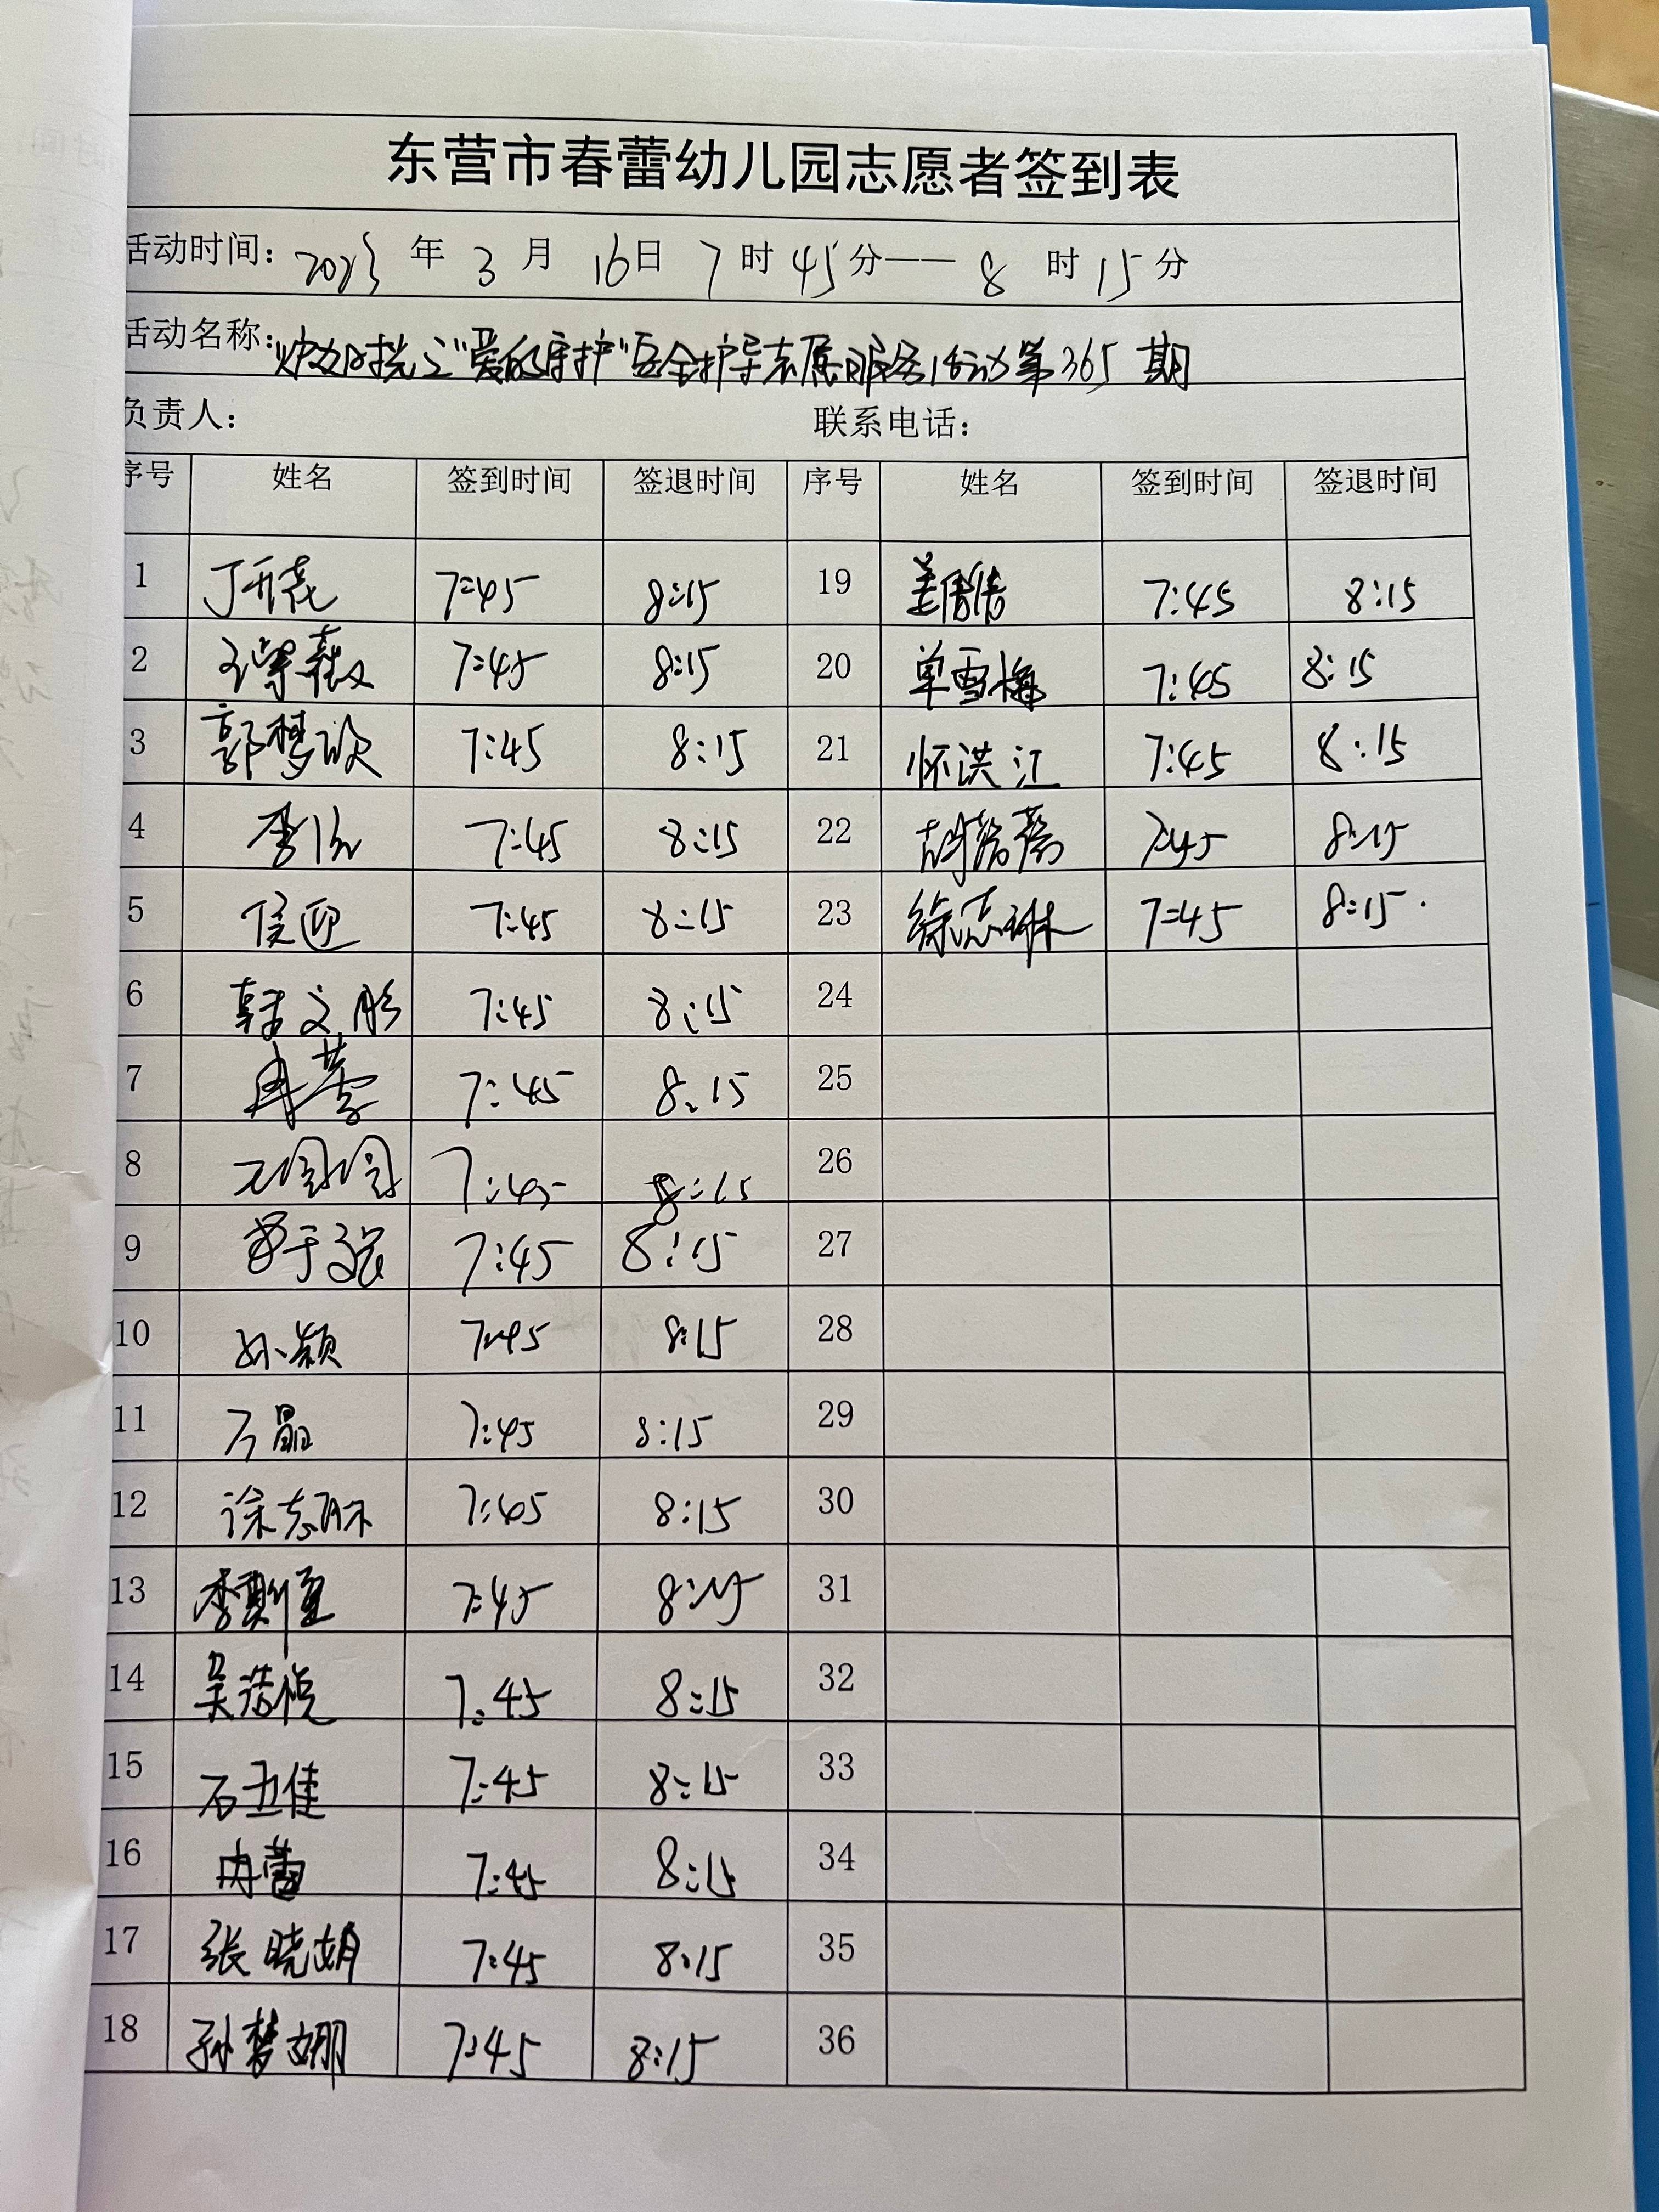 东营市春蕾幼儿园志愿者签到表
活动时间: 2023 年 3 月 16日 7 时 45分—— 8 时 15 分
活动名称: "爱的守护"安全护导志愿服务活动第365期
负责人: 联系电话:
序号 姓名 签到时间 签退时间 序号 姓名 签到时间 签退时间
1 7:45 8:15 19 姜倩倩 7:45 8:15
2 7:45 8:15 20 单雪梅 7:45 8:15
3 郭梦欣 7:45 8:15 21 怀洪江 7:45 8:15
4 7:45 8:15 22 7:45 8:15
5 侯迎 7:45 8:15 23 徐志琳 7:45 8:15.
6 韩文彤 7:45 8:15 24
7 7:45 8:15 25
8 7:45 8:15 26
9 7:45 8:15 27
10 孙颖 7:45 8:15 28
11 万晶 7:45 8:15 29
12 7:45 8:15 30
13 7:45 8:15 31
14 吴浩悦 7:45 8:15 32
15 石丑佳 7:45 8:15 33
16 冉蕾 7:45 8:15 34
17 张晓娟 7:45 8:15 35
18 孙梦娜 7:45 8:15 36